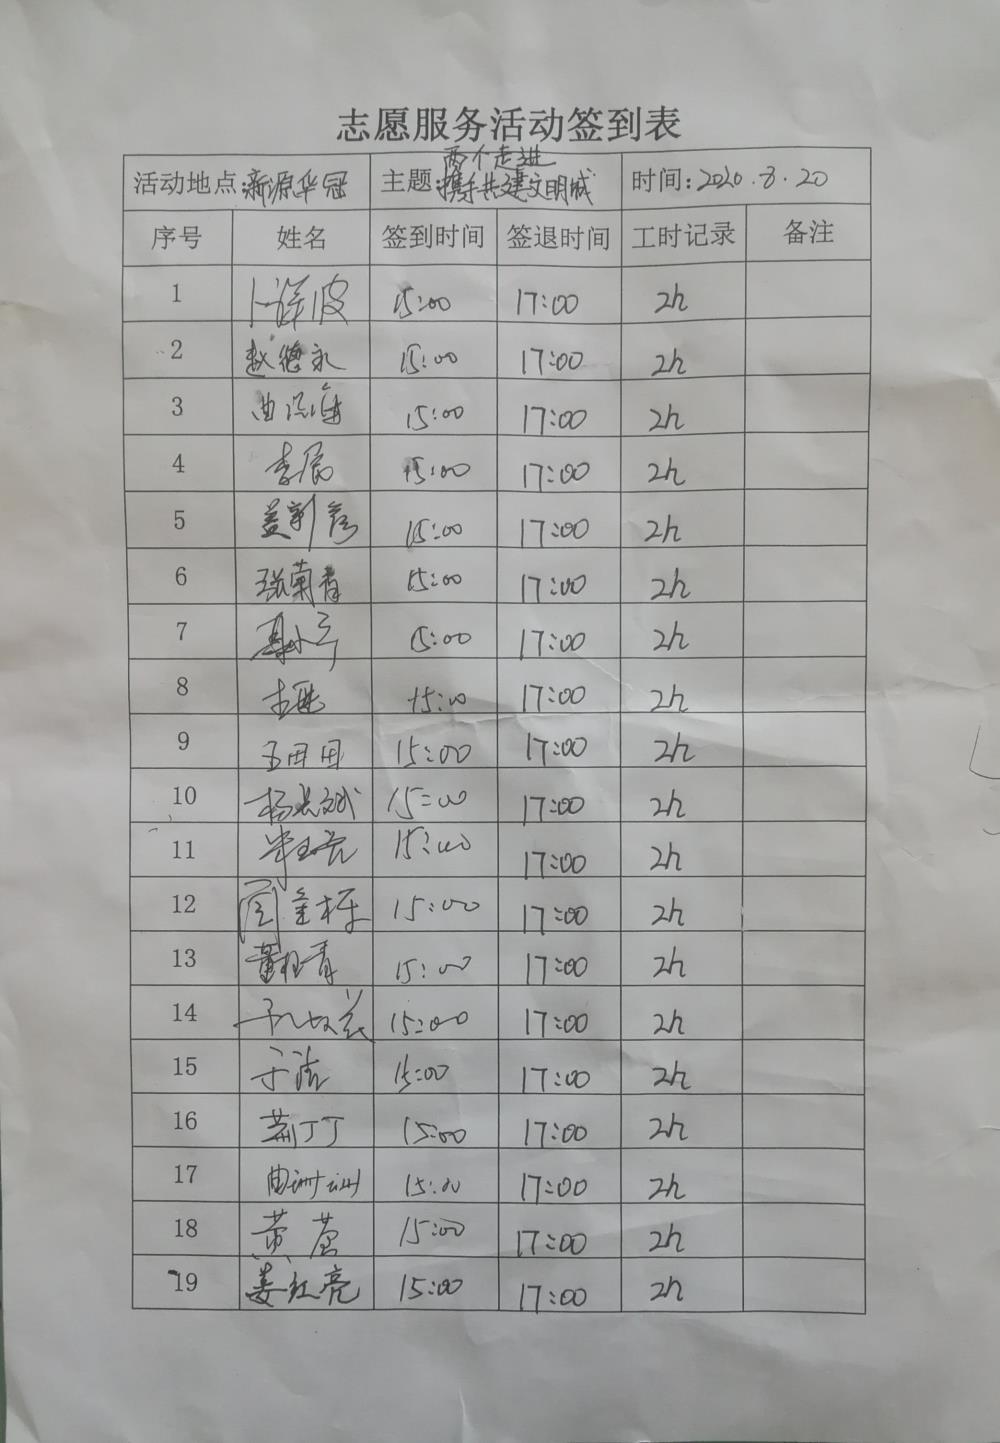 志愿服务活动签到表
活动地点:新源华冠 主题:两个走进 携手共建文明城 时间:2020.8.20
序号 姓名 签到时间 签退时间 工时记录 备注
1 卜祥波 15:00 17:00 2h
2 赵德永 15:00 17:00 2h
3 曲 15:00 17:00 2h
4 李辰 15:00 17:00 2h
5 姜新 15:00 17:00 2h
6 张菊青 15:00 17:00 2h
7 15:00 17:00 2h
8 15:00 17:00 2h
9 王田田 15:00 17:00 2h
10 杨长斌 15:00 17:00 2h
11 15:00 17:00 2h
12 15:00 17:00 2h
13 董桂青 15:00 17:00 2h
14 15:00 17:00 2h
15 于洁 15:00 17:00 2h
16 荆丁丁 15:00 17:00 2h
17 曲洲洲 15:00 17:00 2h
18 黄蕾 15:00 17:00 2h
19 姜红亮 15:00 17:00 2h